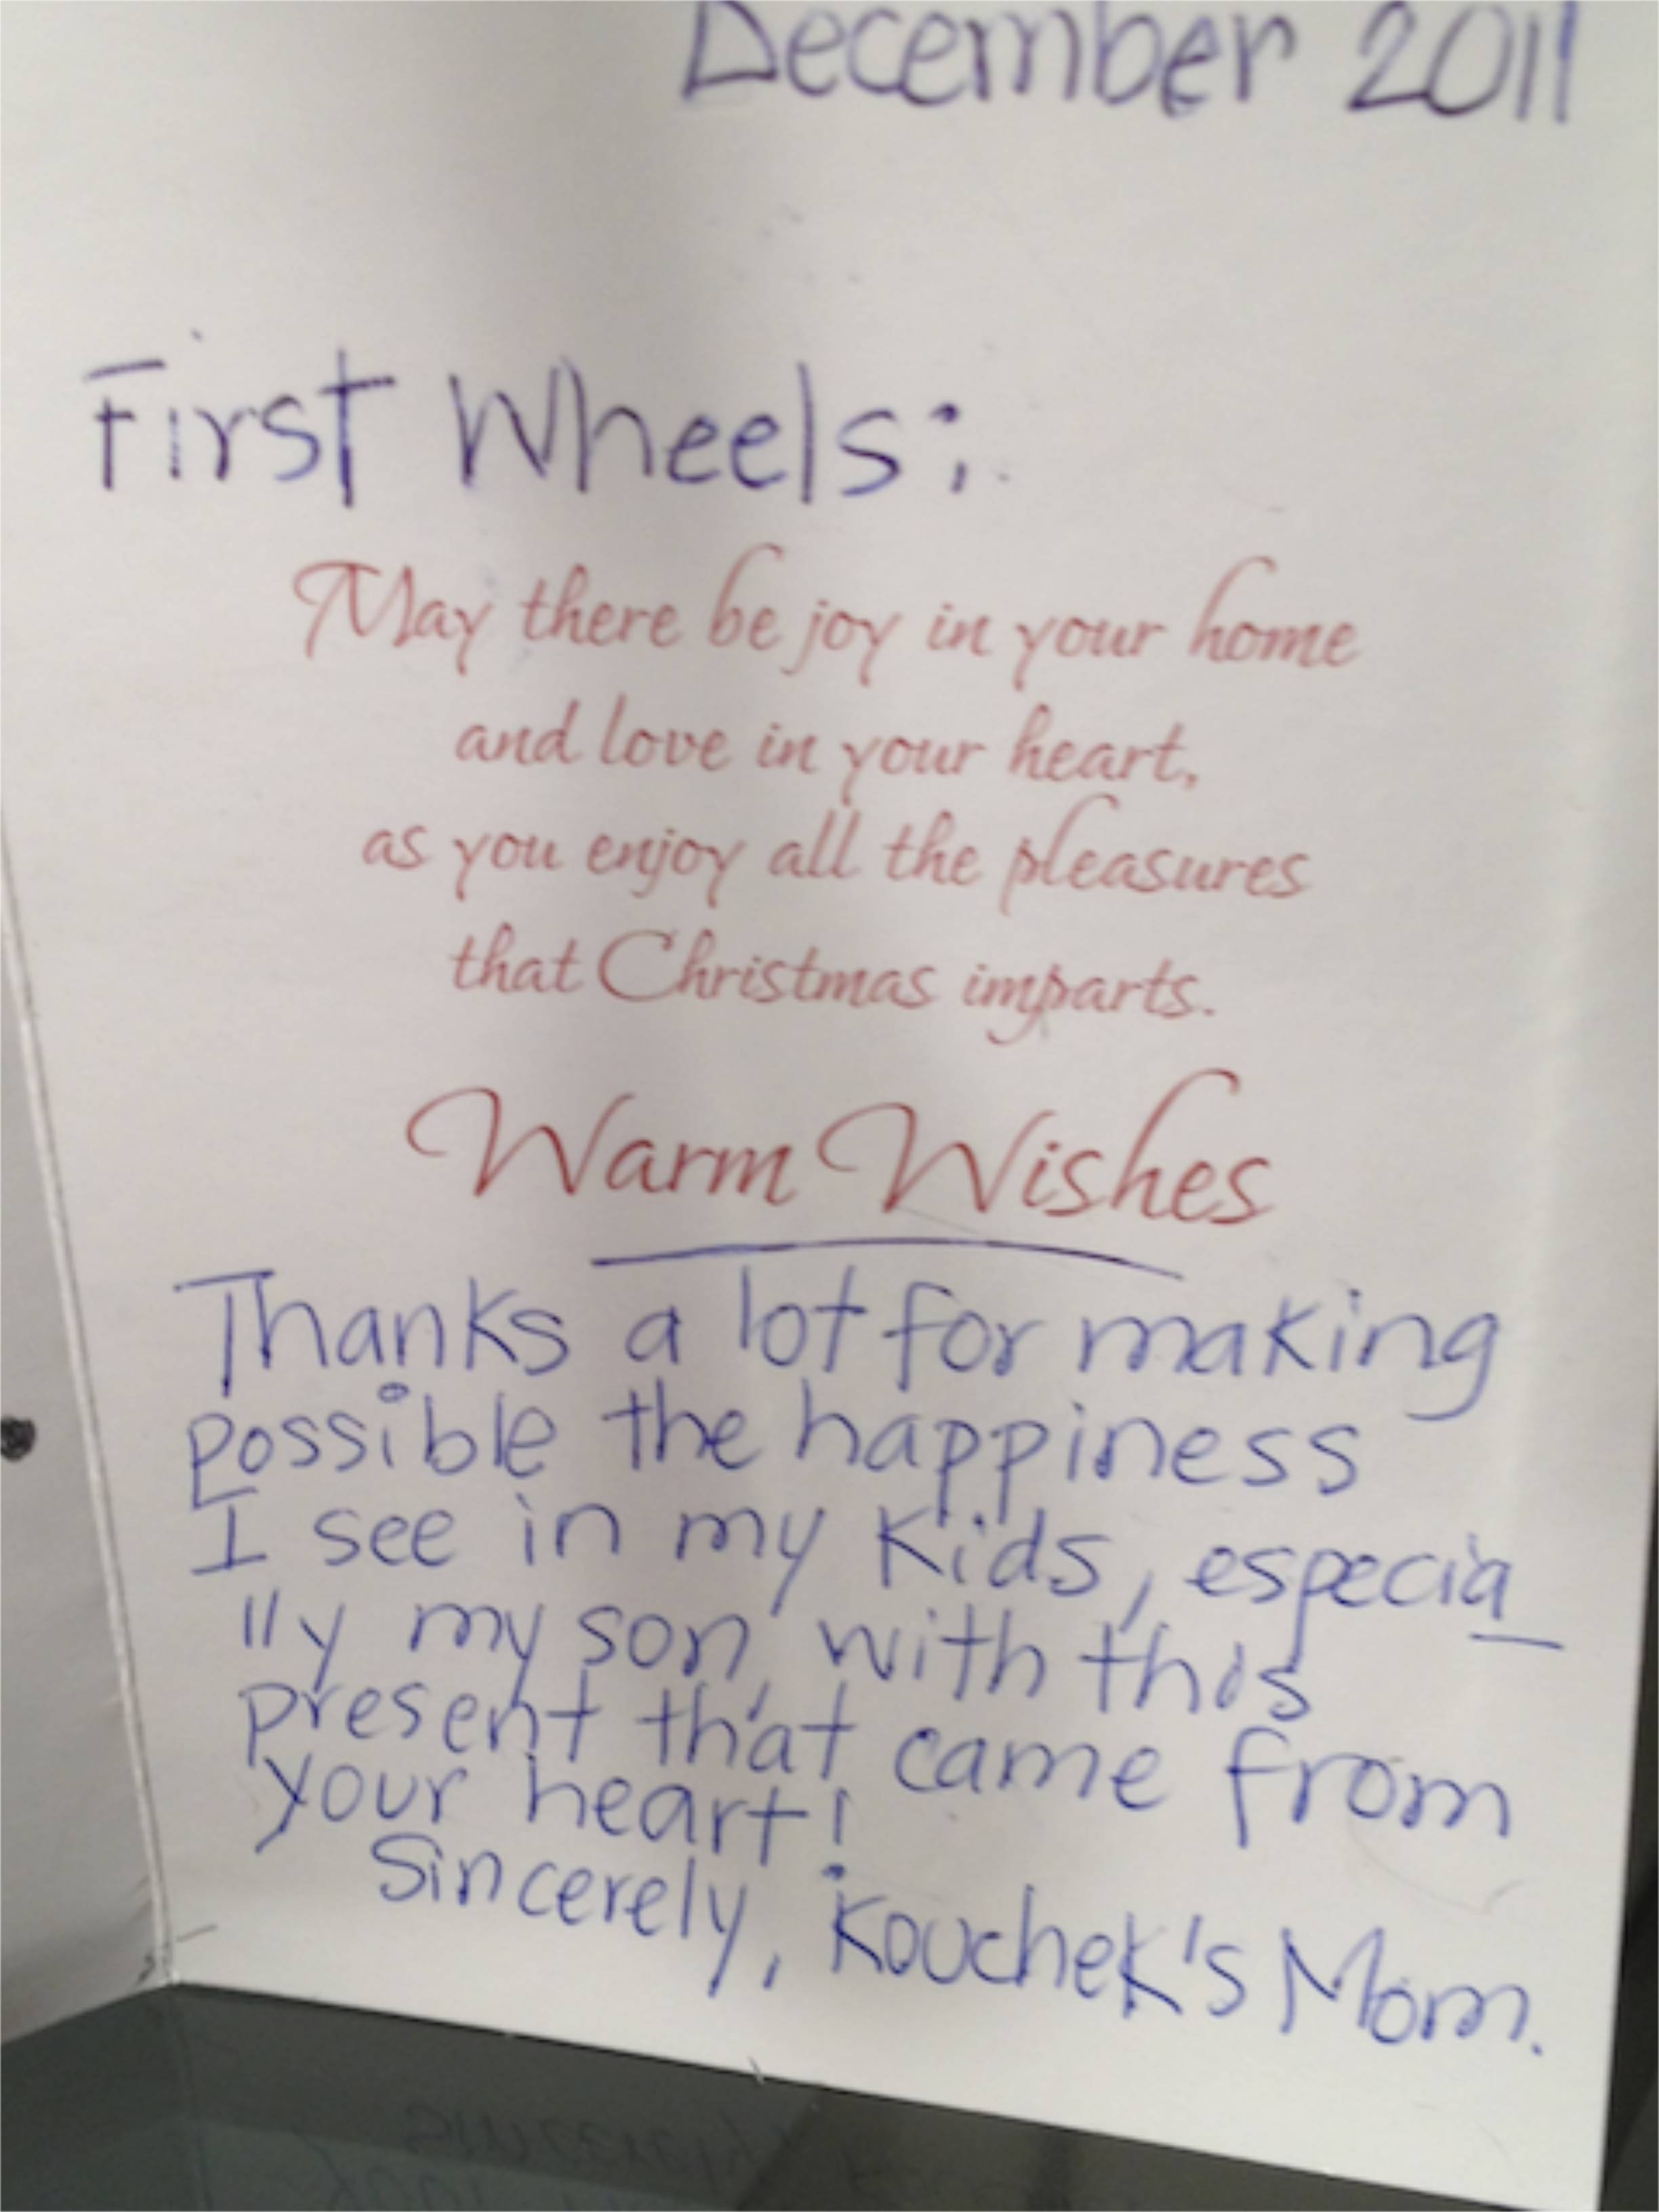 December 2011
First Wheels:
May there be joy in your home
and love in your heart,
as you enjoy all the pleasures
that Christmas imparts.
Warm Wishes
Thanks a lot for making
possible the happiness
I see in my Kids, especia
lly my son, with this
present that came from
your heart!
Sincerely, Kouchek's Mom.